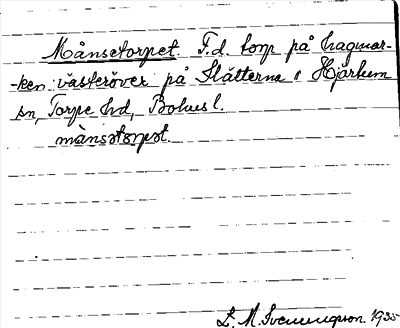 Månsetorpet. F.d. torp på Lagmar-
-ken västeröver på Slätterna i Hjärtum
sn, Torpe hd, Bohusl.
månsətɔrpət.
L. M. Svenungsson 1935